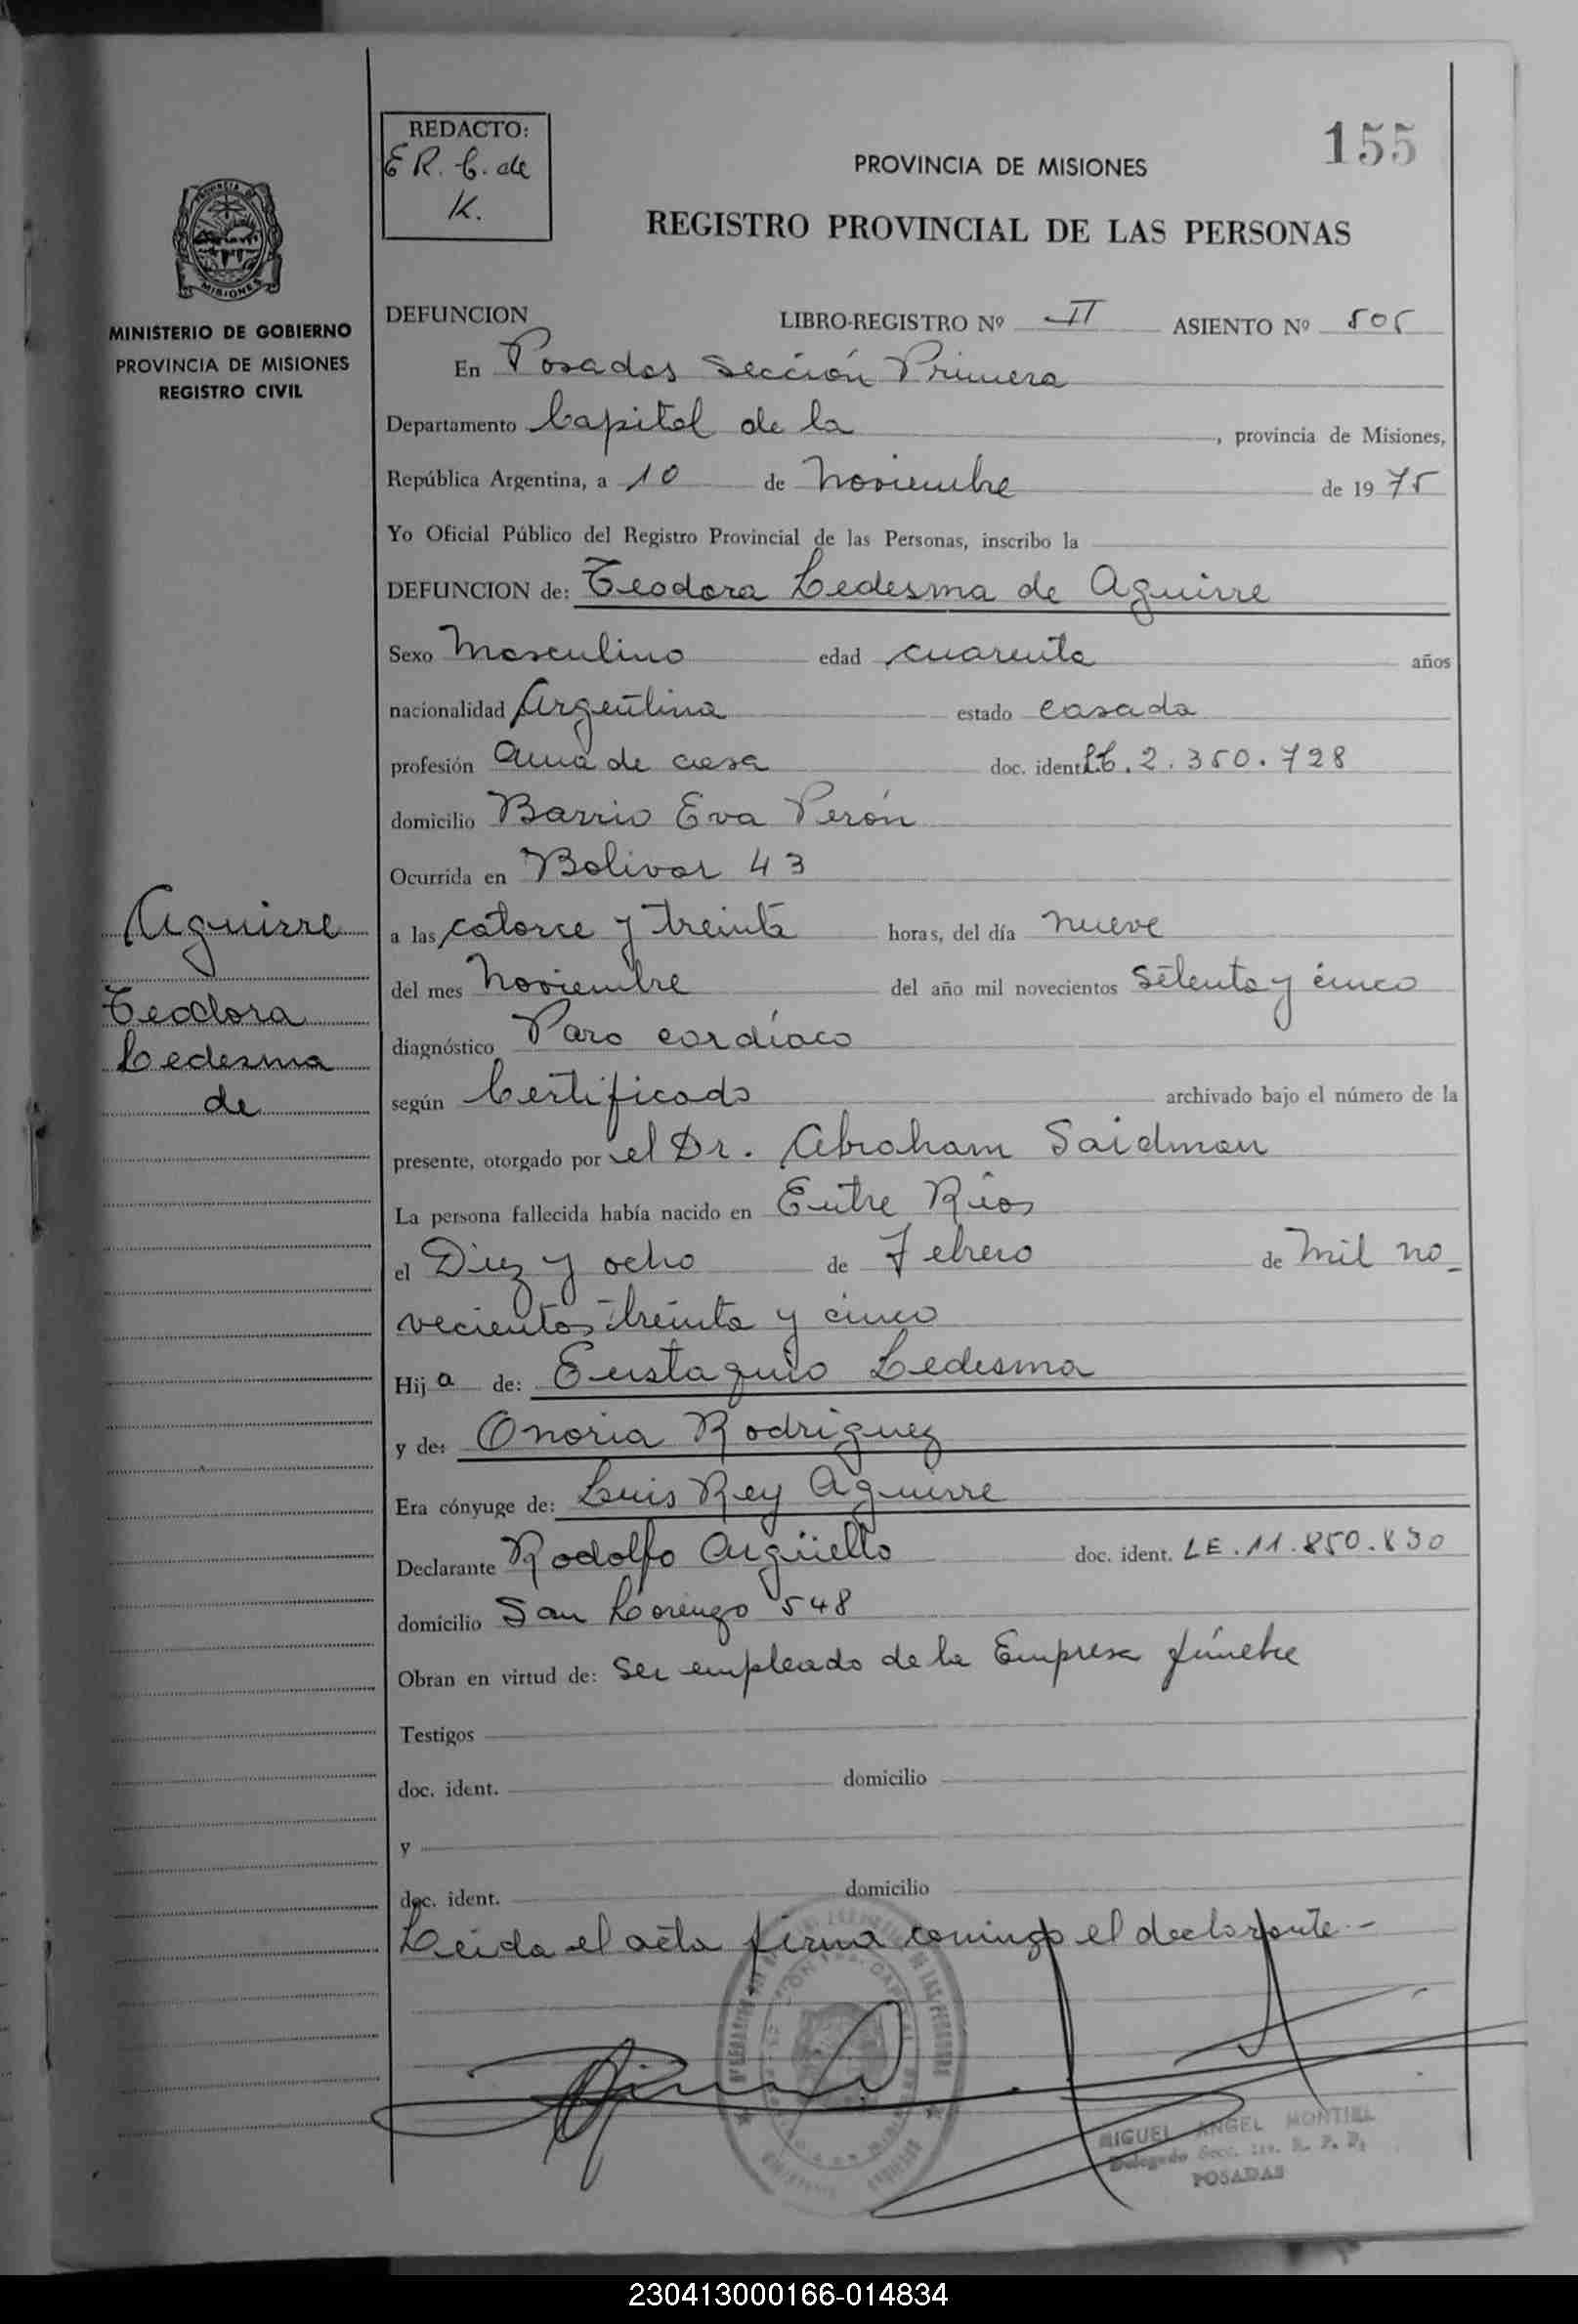 155
REDACTO:
E R. C. de
K.
PROVINCIA DE MISIONES
REGISTRO PROVINCIAL DE LAS PERSONAS
MISIONES
MINISTERIO DE GOBIERNO
PROVINCIA DE MISIONES
REGISTRO CIVIL
DEFUNCION LIBRO-REGISTRO Nº II ASIENTO Nº 505
En Posadas Sección Primera
Departamento Capital de la , provincia de Misiones,
República Argentina, a 10 de Noviembre de 1975
Yo Oficial Público del Registro Provincial de las Personas, inscribo la
DEFUNCION de: Teodora Ledesma de Aguirre
Sexo Masculino edad cuarenta años
nacionalidad Argentina estado casada
profesión Ama de casa doc. ident. LC. 2.350.728
domicilio Barrio Eva Perón
Ocurrida en Bolivar 43
a las catorce y treinta horas, del día nueve
del mes Noviembre del año mil novecientos setenta y cinco
diagnóstico Paro cardíaco
según Certificado archivado bajo el número de la
presente, otorgado por el Dr. Abraham Saidman
La persona fallecida había nacido en Entre Ríos
el Diez y ocho de Febrero de mil no_
vecientos treinta y cinco
Hija de: Eustaquio Ledesma
y de: Onoria Rodriguez
Era cónyuge de: Luis Rey Aguirre
Declarante Rodolfo Argüello doc. ident. LE. 11.850.830
domicilio San Lorenzo 548
Obran en virtud de: Ser empleado de la Empresa fúnebre
Testigos
doc. ident. domicilio
y
doc. ident. domicilio
Leida el acta firma conmigo el declarante.-
Aguirre
Teodora
Ledesma
de
MIGUEL ANGEL MONTIEL
Delegado Secc. 1ra. R. P. P.
POSADAS
230413000166-014834